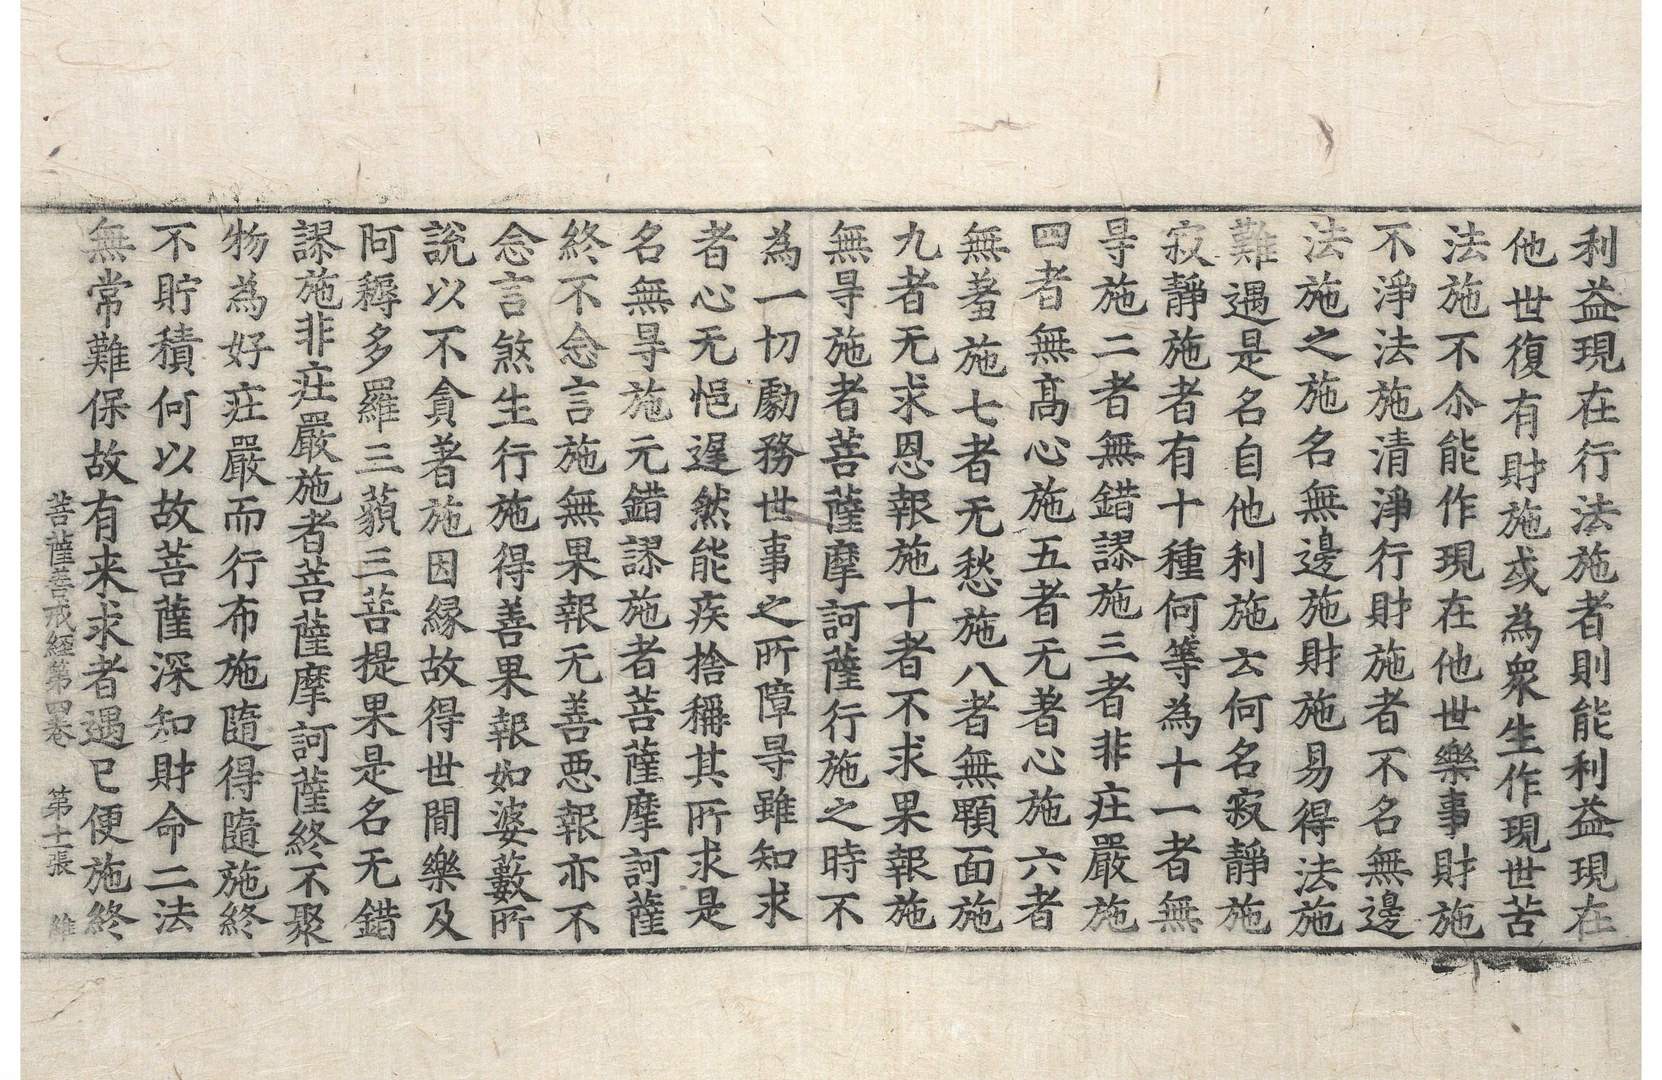 利益現在行法施者則能利益現在
他世復有財施或為衆生作現世苦
法施不尒能作現在他世樂事財施
不淨法施清淨行財施者不名無邊
法施之施名無邊施財施易得法施
難遇是名自他利施云何名寂靜施
寂靜施者有十種何等為十一者無
㝵施二者無錯謬施三者非庄嚴施
四者無髙心施五者无著心施六者
無羞施七者无愁施八者無顋面施
九者无求恩報施十者不求果報施
無㝵施者菩薩摩訶薩行施之時不
為一切勴務世事之所障㝵雖知求
者心无悒遲然能疾捨稱其所求是
名無㝵施无錯謬施者菩薩摩訶薩
終不念言施無果報无善惡報亦不
念言煞生行施得善果報如婆藪所
說以不貪著施因縁故得世間樂及
阿耨多羅三藐三菩提果是名无錯
謬施非庄嚴施者菩薩摩訶薩終不聚
物為好庄嚴而行布施隨得隨施終
不貯積何以故菩薩深知財命二法
無常難保故有来求者遇已便施終
菩薩善戒經第四卷 第十一張 維